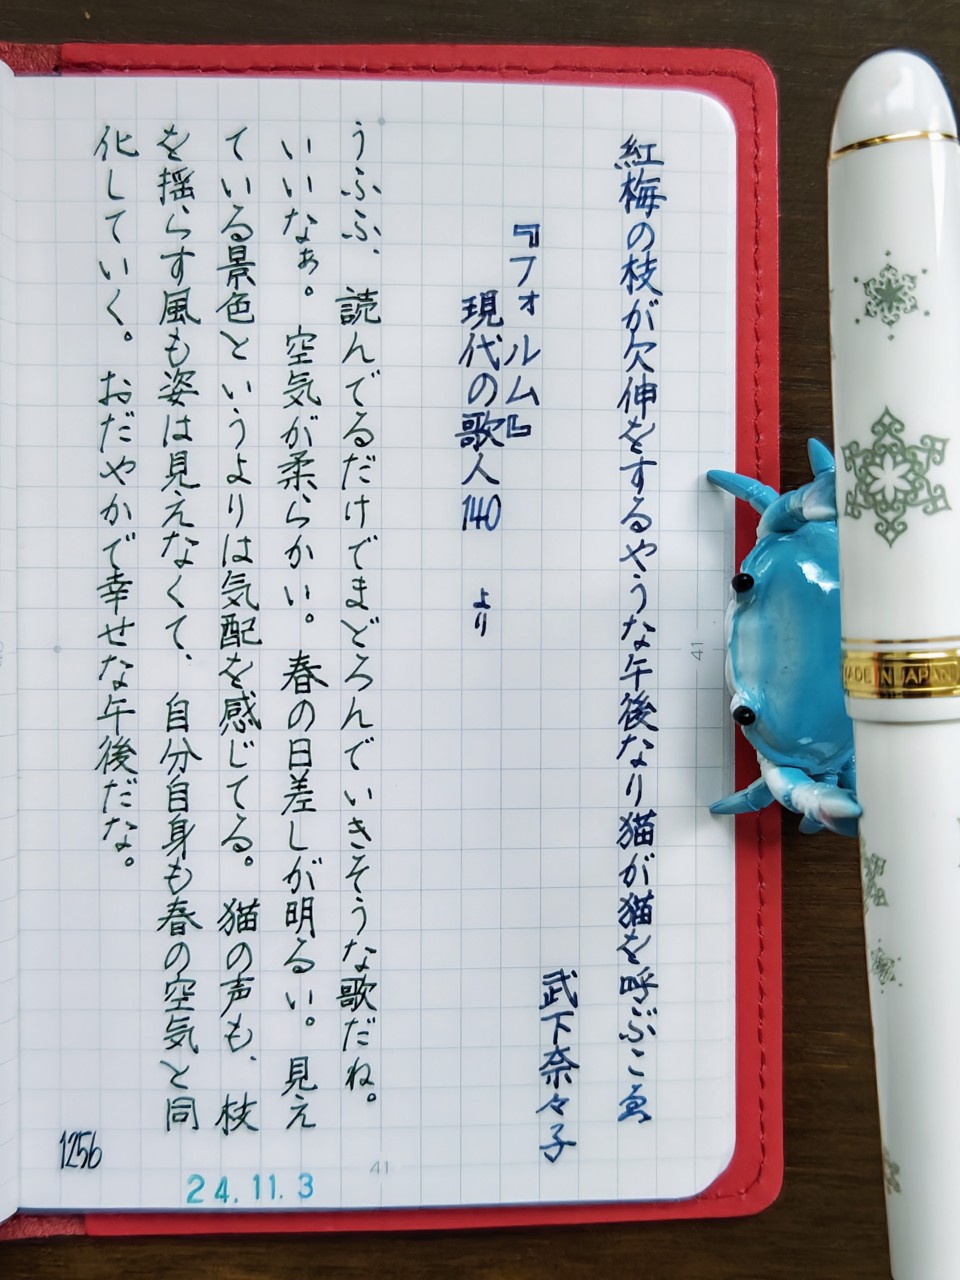 紅梅の枝が欠伸をするやうな午後なり猫が猫を呼ぶこゑ
武下奈々子
『フォルム』
現代の歌人140 より
うふふ、読んでるだけでまどろんでいきそうな歌だね。
いいなぁ。空気が柔らかい。春の日差しが明るい。見え
ている景色というよりは気配を感じてる。猫の声も、枝
を揺らす風も姿は見えなくて、自分自身も春の空気と同
化していく。おだやかで幸せな午後だな。
1256
24.11.3
41
41
MADE IN JAPAN